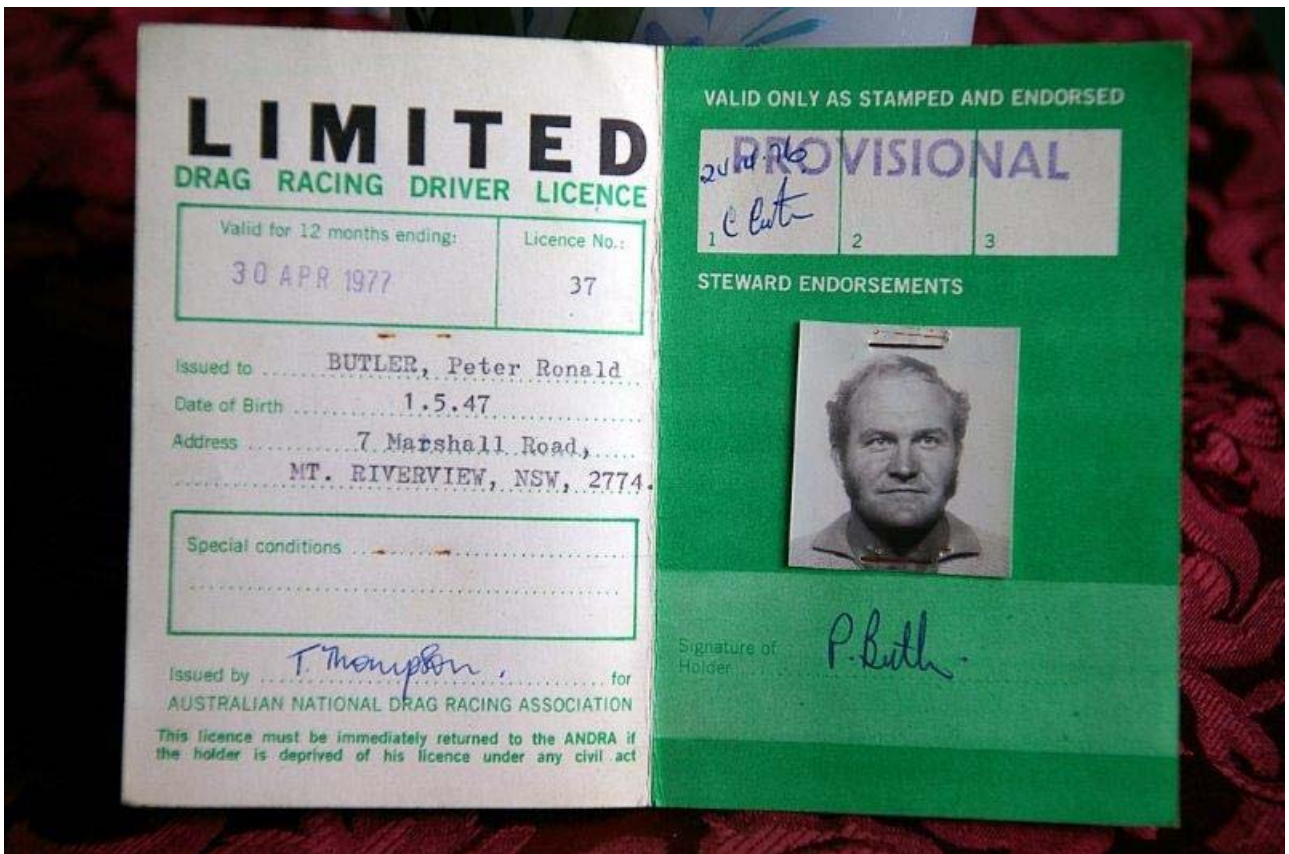 LIMITED
DRAG RACING DRIVER LICENCE
Valid for 12 months ending:
30 APR 1977
Licence No.:
37
Issued to BUTLER, Peter Ronald
Date of Birth 1.5.47
Address 7 Marshall Road,
MT. RIVERVIEW, NSW, 2774.
Special conditions
T. Thompson.
Issued by for
AUSTRALIAN NATIONAL DRAG RACING ASSOCIATION
This licence must be immediately returned to the ANDRA if
the holder is deprived of his licence under any civil act
VALID ONLY AS STAMPED AND ENDORSED
PROVISIONAL
1 2 3
STEWARD ENDORSEMENTS
Signature of
Holder
P. Butler